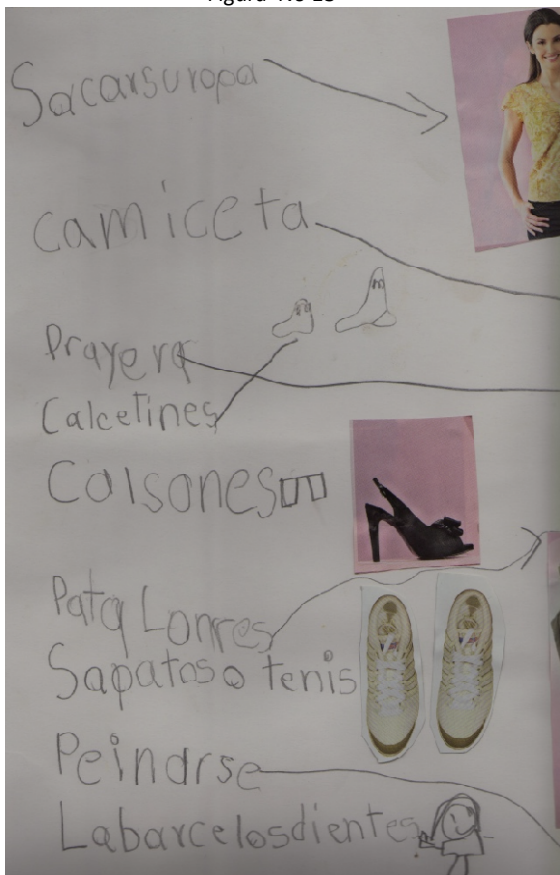 Sacarsuropa
camiceta
Prayera
Calcetines
Calsones
Pata Lonres
Sapatos o tenis
Peinarse
Labarcelosdientes